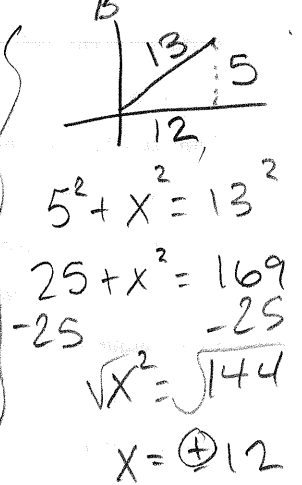 B
13
5
12
5² + x² = 13²
25 + x² = 169
-25 -25
√x² = √144
x = ± 12